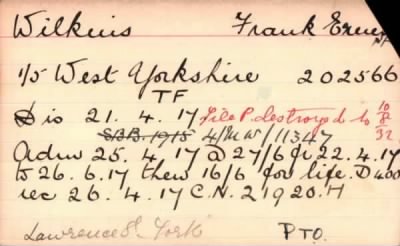 Wilkins Frank Ernest
1/5 West Yorkshire 202566
TF
Dis 21. 4. 17 File P. Destroyed
10
32
S.B.B. 1915 4/MW/11347
Adm 25. 4. 17 @ 27/6 fr 22. 4. 17
to 26. 6. 17 then 16/6 for life. D400
rec 26. 4. 17 C.N. 2192047
Lawrence St York P.T.O.